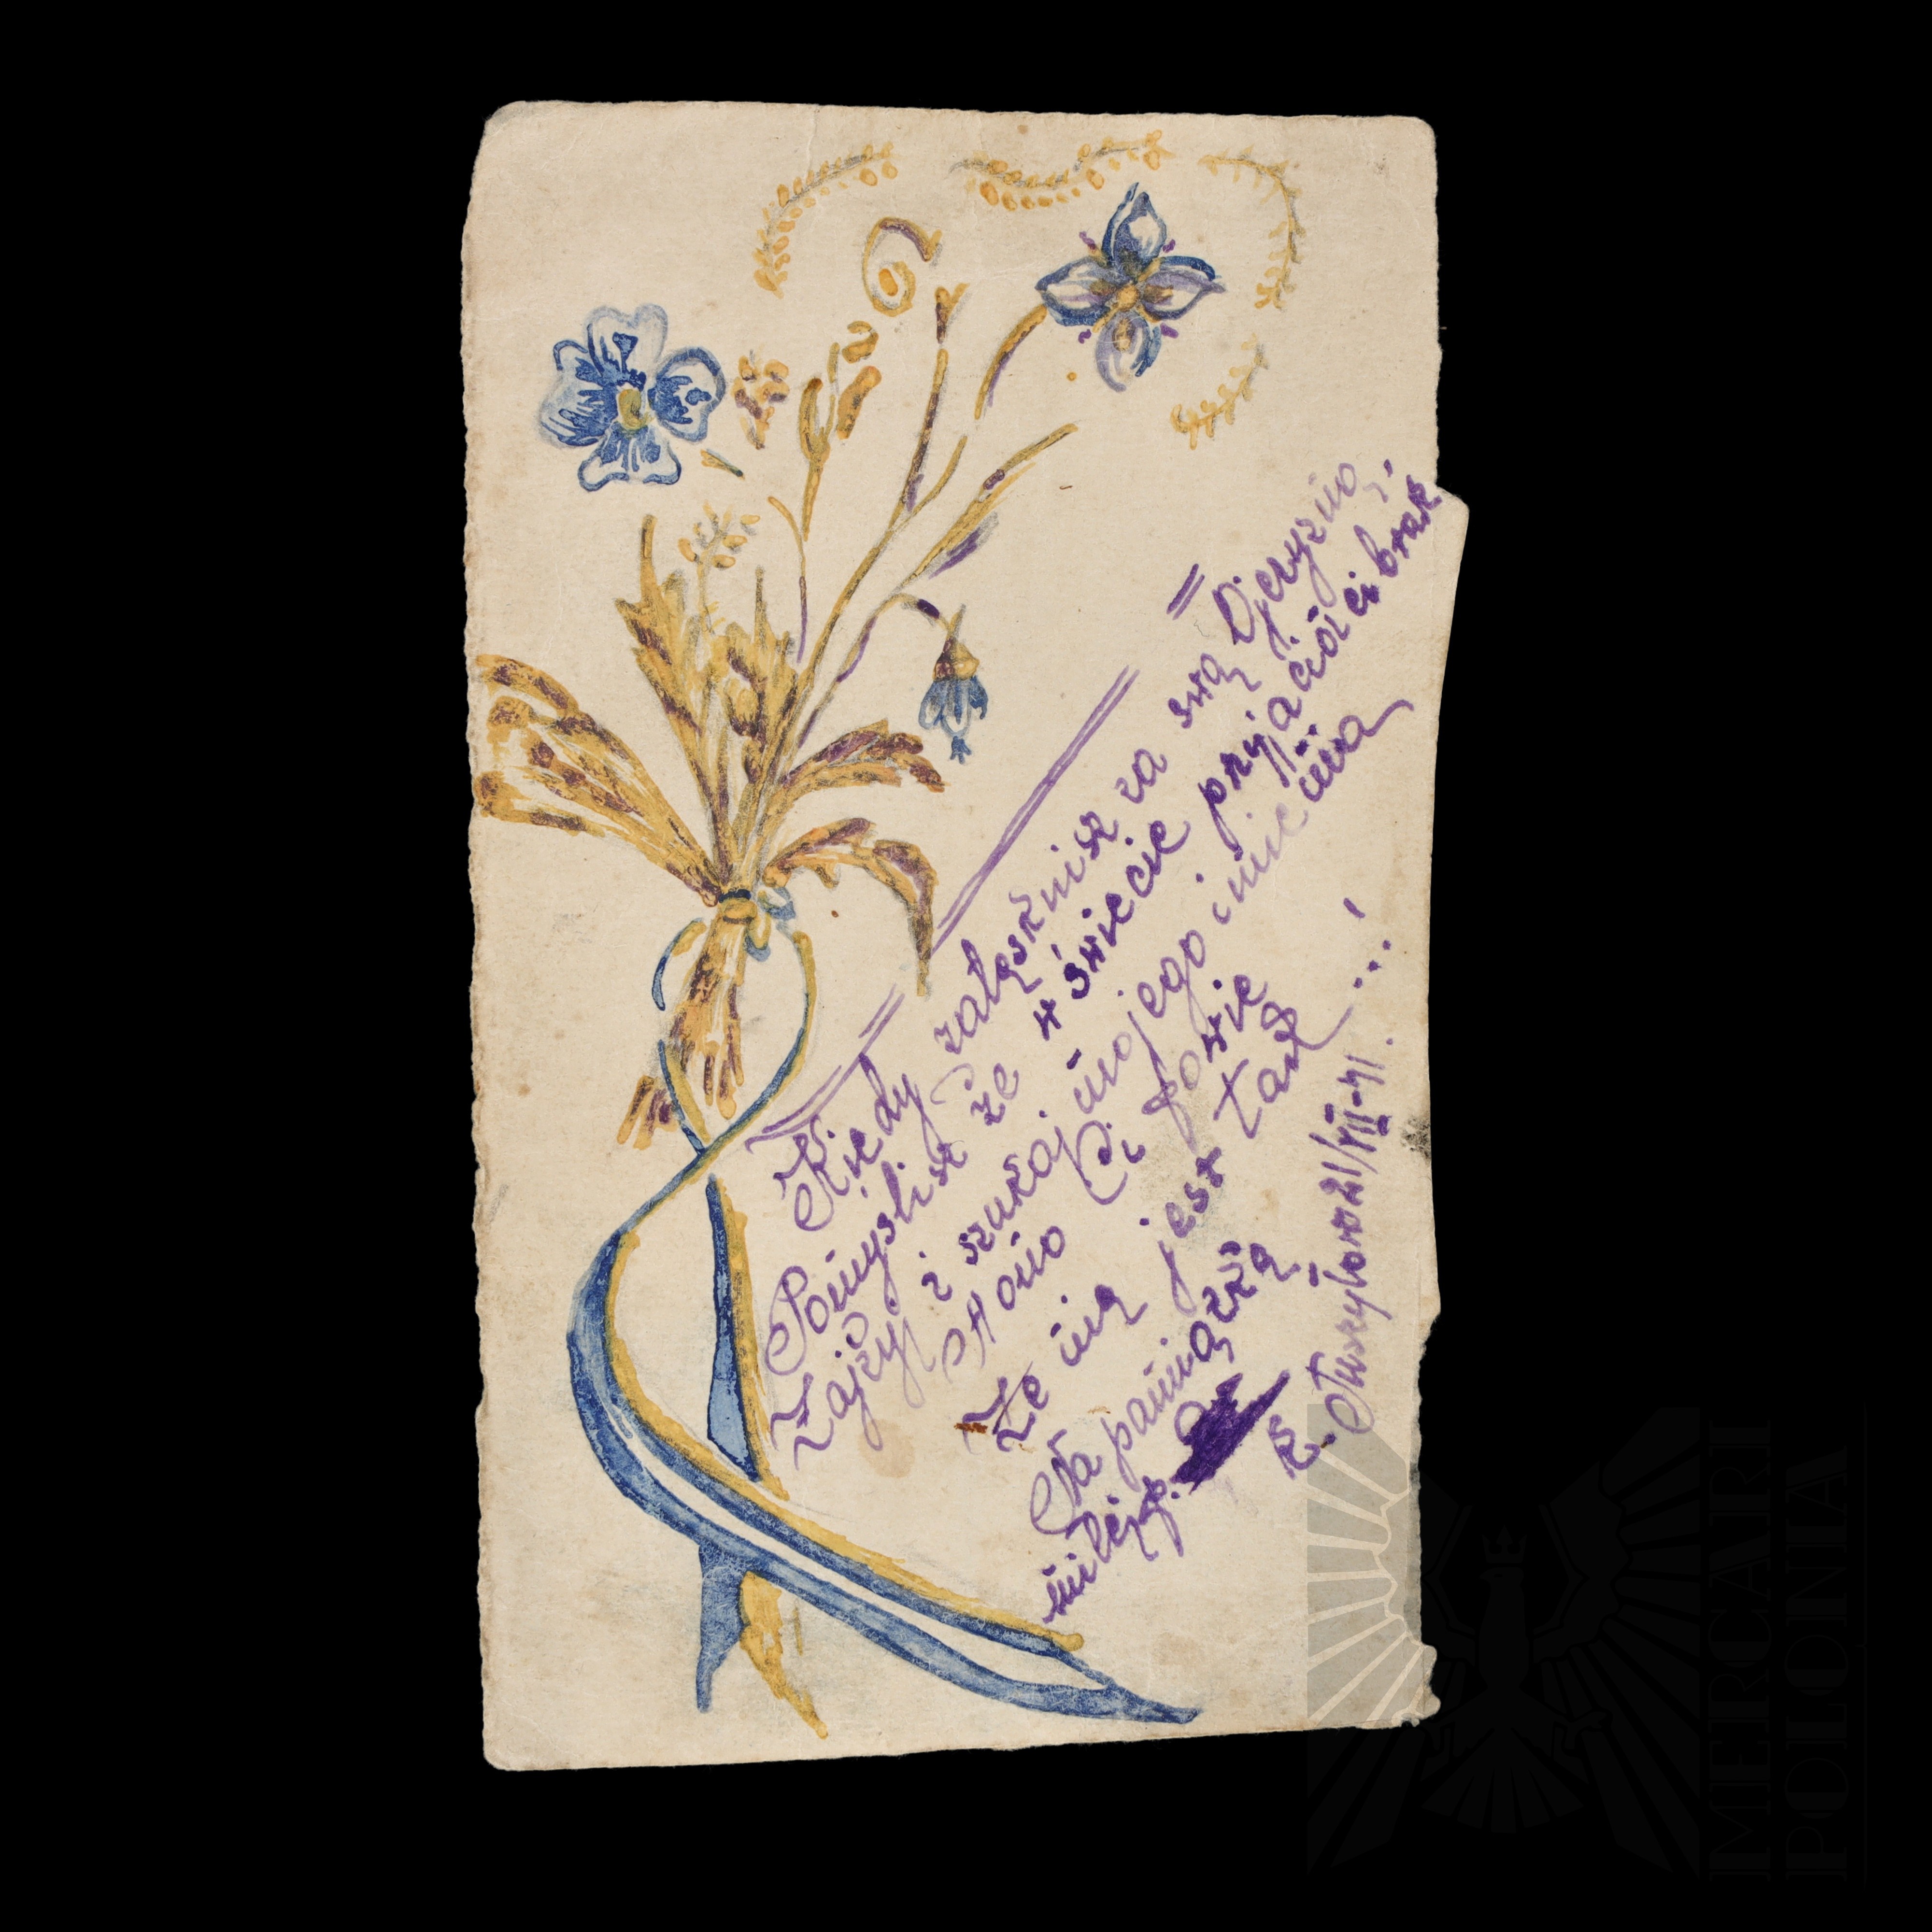 Kiedy zatęsknisz za swą Ojczyzną
Pomyślisz że w świecie przyjaciół ci brak
Zajrzyj i szukaj mojego imienia
Ono Ci powie
Że mą jest tak...!
Na pamiątkę
miłej p.
K.
21/VII-41.
MERCARI
POLONIA